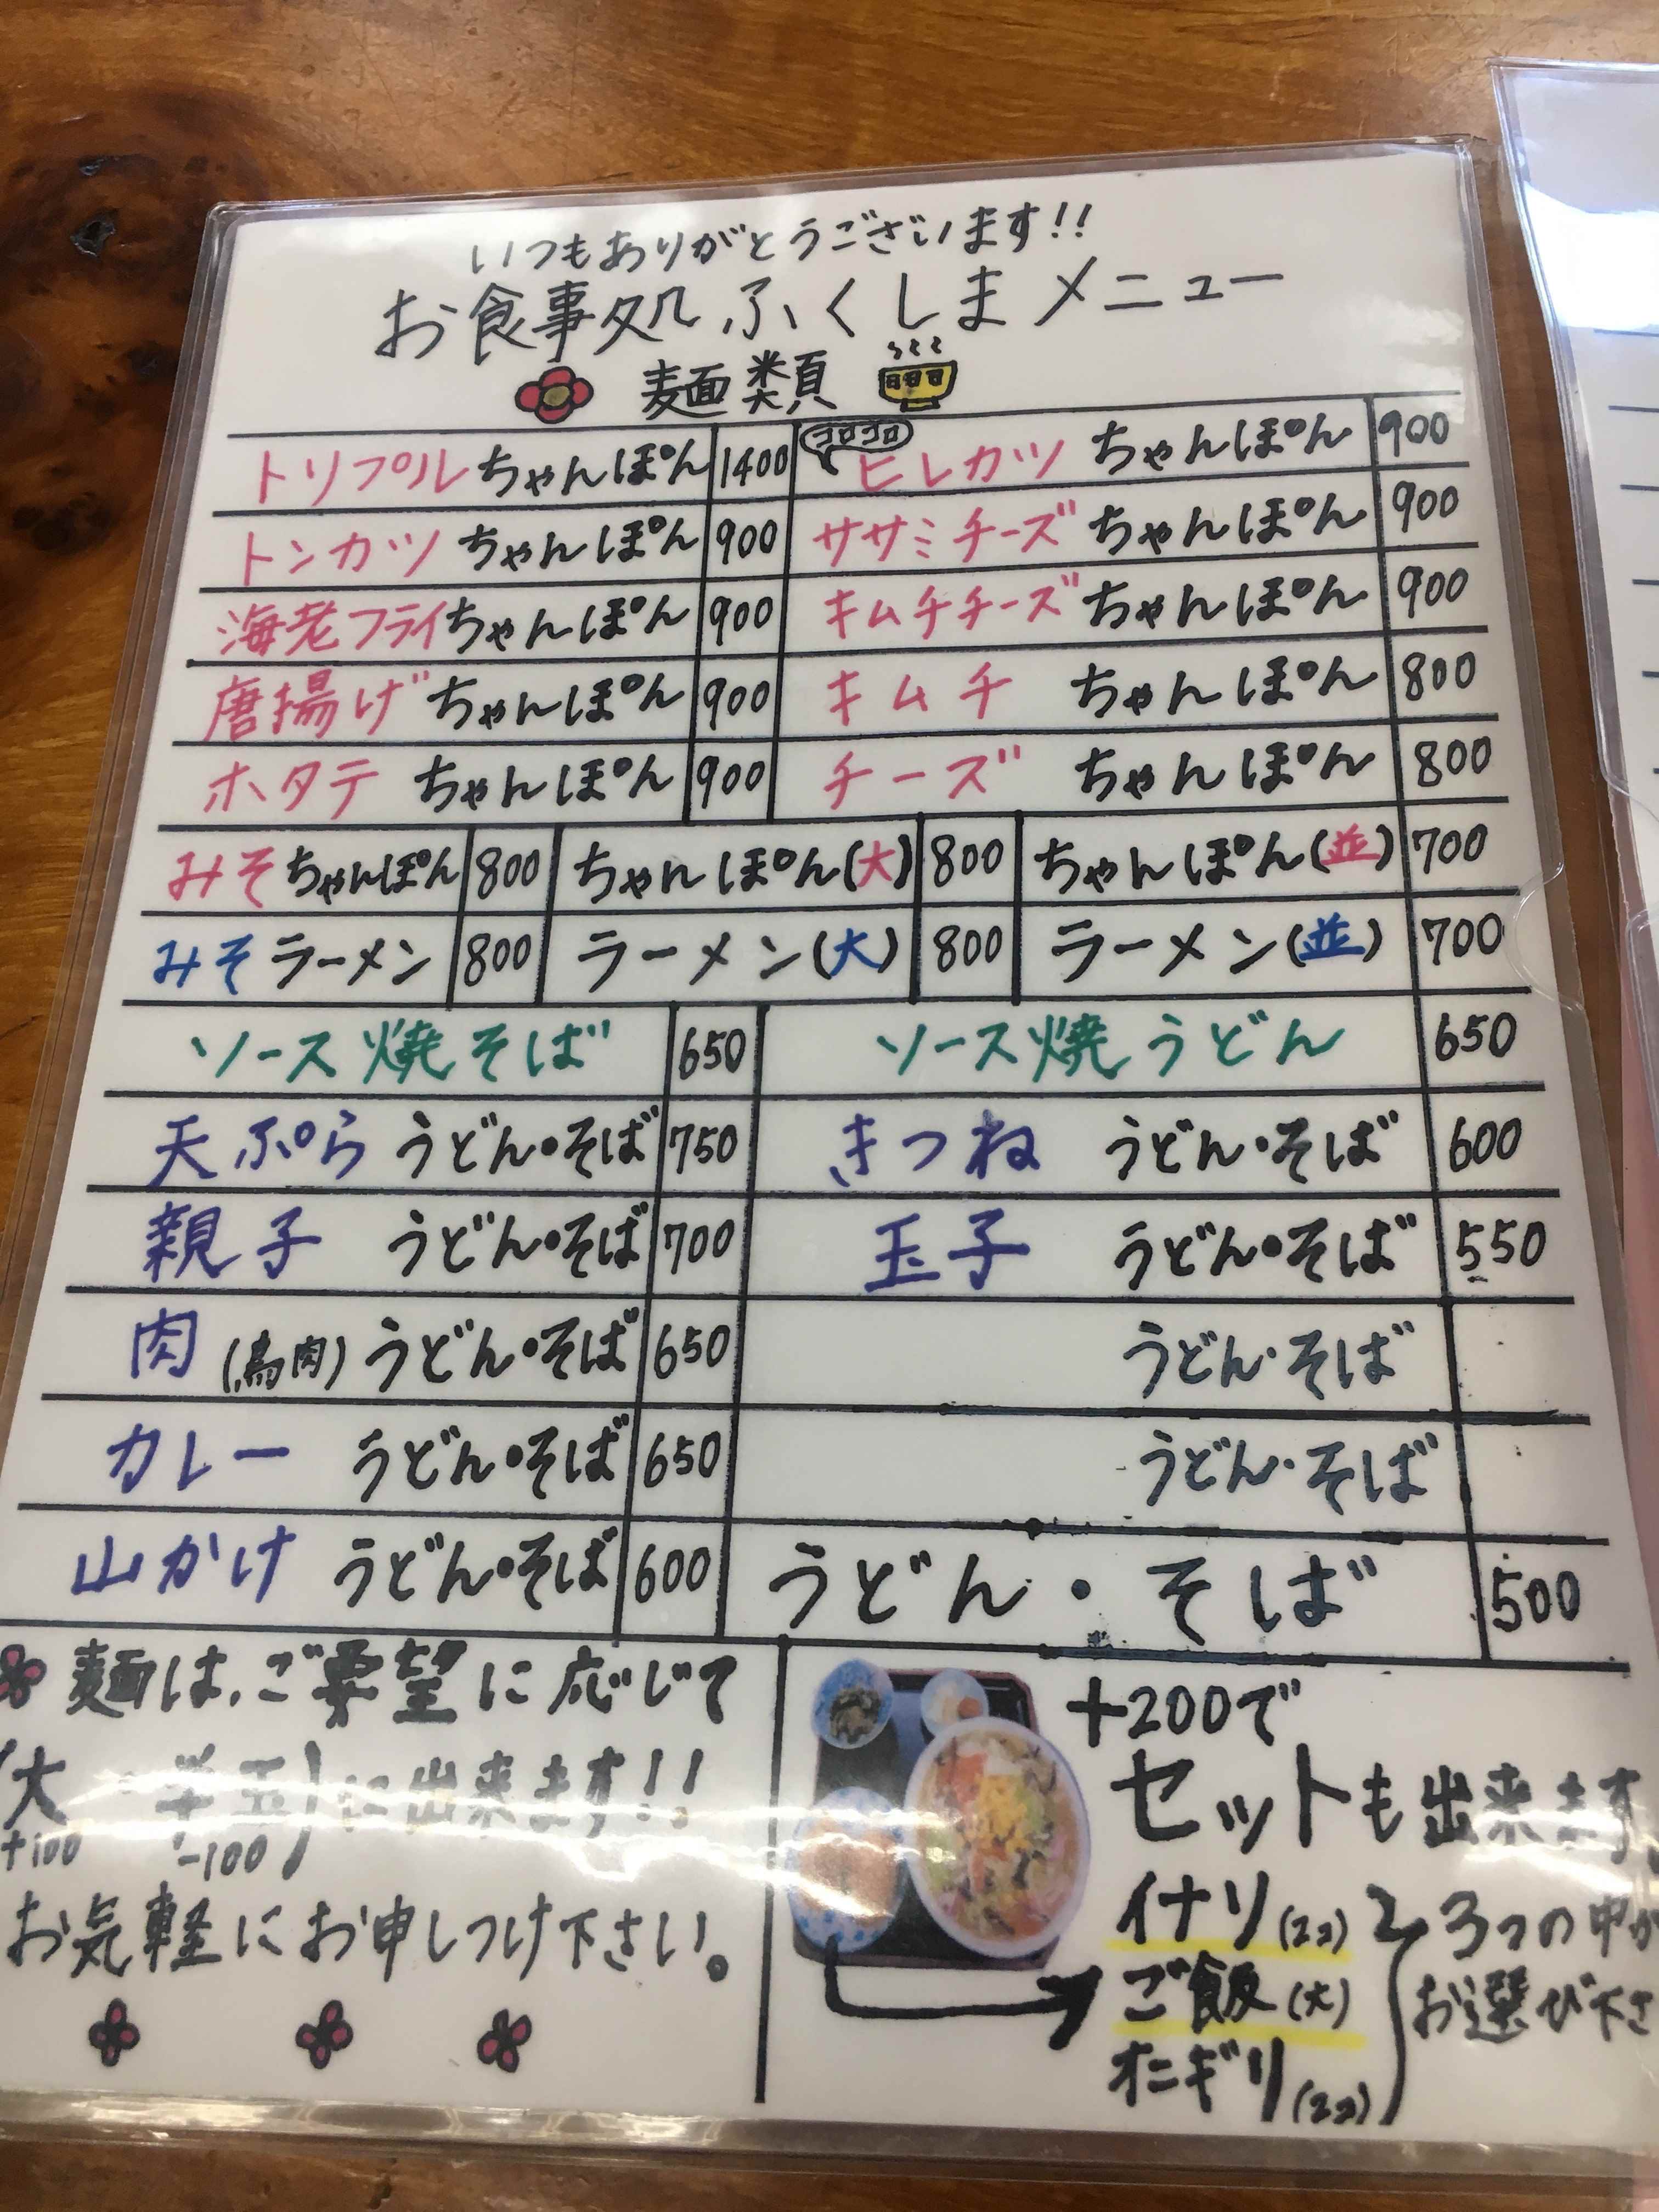 いつもありがとうございます!!
お食事処 ふくしまメニュー
麺類
トリプルちゃんぽん 1400 ゴロゴロ ヒレカツ ちゃんぽん 900
トンカツ ちゃんぽん 900 ササミチーズ ちゃんぽん 900
海老フライちゃんぽん 900 キムチチーズ ちゃんぽん 900
唐揚げ ちゃんぽん 900 キムチ ちゃんぽん 800
ホタテ ちゃんぽん 900 チーズ ちゃんぽん 800
みそちゃんぽん 800 ちゃんぽん(大) 800 ちゃんぽん(並) 700
みそラーメン 800 ラーメン(大) 800 ラーメン(並) 700
ソース焼そば 650 ソース焼うどん 650
天ぷら うどん・そば 750 きつね うどん・そば 600
親子 うどん・そば 700 玉子 うどん・そば 550
肉(鳥肉)うどん・そば 650 うどん・そば
カレー うどん・そば 650 うどん・そば
山かけ うどん・そば 600 うどん・そば 500
麺は、ご要望に応じて
(大 半玉)に出来ます!!
+100 -100
お気軽にお申しつけ下さい。
+200で
セットも出来ます
イナリ(2コ)
ご飯(大)
オニギリ(2コ)
3つの中か
お選び下さ